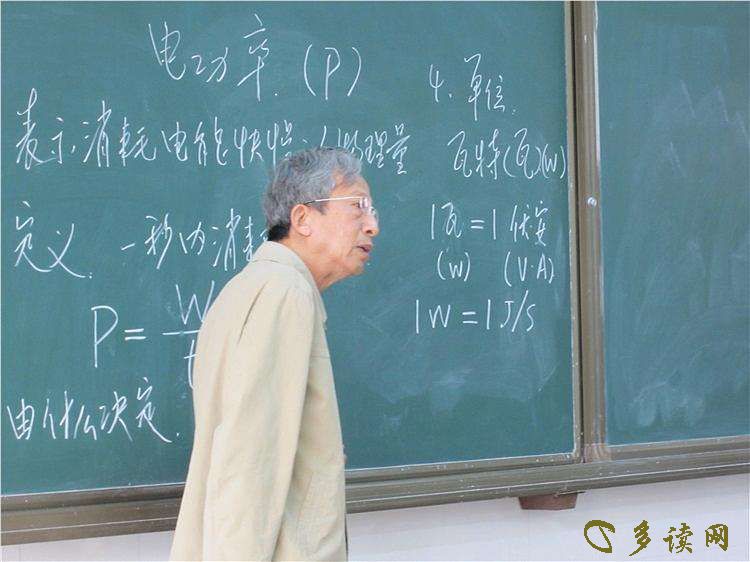 电功率.(P)
表示消耗电能快慢 物理量
定义.一秒内消耗
P=W
由什么决定.
4.单位.
瓦特(瓦)(W)
1瓦=1伏安
(W) (V·A)
1W=1J/s
多读网